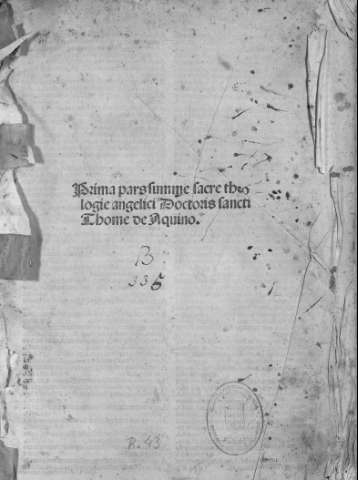 Prima pars summe sacre theo
logie angelici Doctoris sancti
Thome de Aquino.
B
336
R. 43